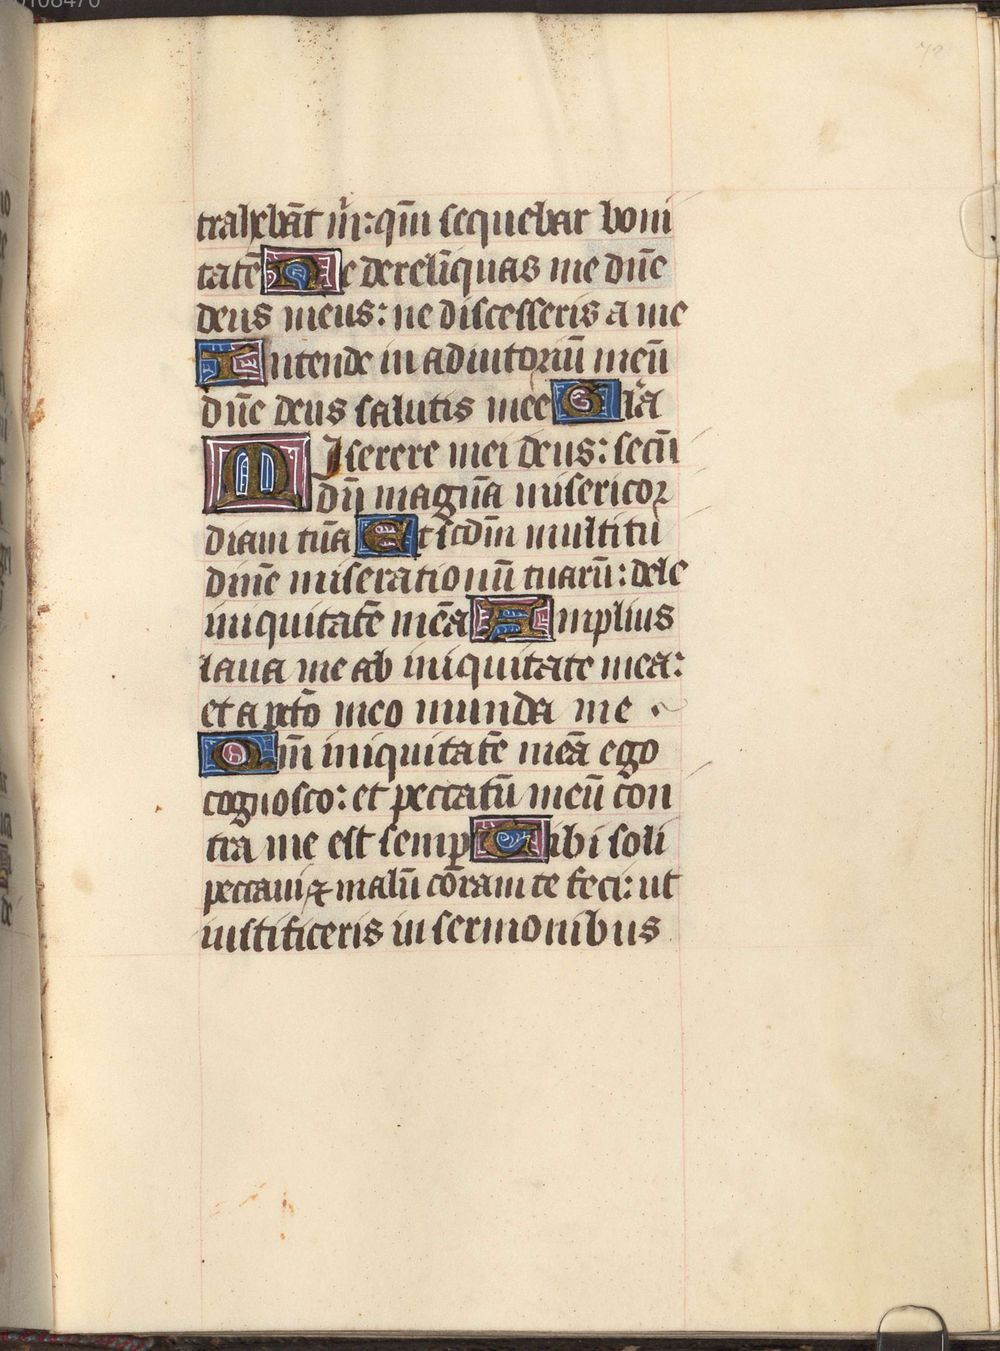 trahebāt m̄r: qm̄ sequebar boni
tatē Ne derelīquas me dn̄e
deus meus: ne discesseris a me
Intende in adiutoriū meū
dn̄e deus salutis mee Glʼa
Miserere mei deus: secū
dū magnā misericor
diam tuā Et scdm̄ multitu
dinē miserationū tuarū: dele
iniquitatē meā Amplius
laua me ab iniquitate mea:
et a pctō meo munda me
Qm̄ iniquitatē meā ego
cognosco: et peccatū meū con
tra me est semp Tibi soli
peccaui ⁊ malū corā te feci: ut
iustificeris in sermonibus